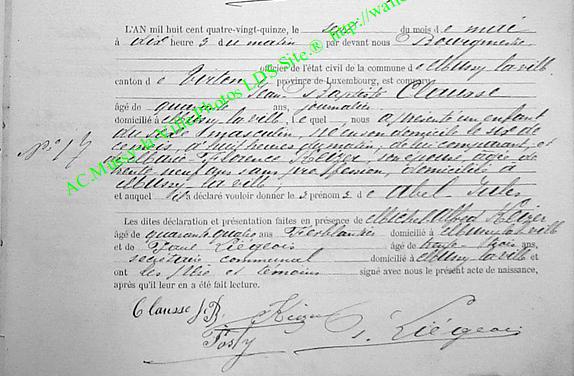 L'AN mil huit cent quatre-vingt-quinze, le sept du mois de mai
à dix heures du matin par devant nous Bourgmestre
officier de l'état civil de la commune de Mussy la ville
canton de Virton province de Luxembourg, est comparu
Jean Baptiste Clausse
âgé de quarante ans, journalier
domicilié à Mussy la ville, lequel nous a présenté un enfant
du sexe masculin, né en son domicile le six de
ce mois à huit heures du matin, de lui comparant, et
de Marie Florence Keizer, son épouse, âgée de
trente neuf ans sans profession, domiciliée à
Mussy la ville;
N° 17
et auquel il a déclaré vouloir donner les prénoms de Abel Jules
Les dites déclaration et présentation faites en présence de Michel Alfred Keizer
âgé de quarante quatre ans Ferblantier domicilié à Mussy la ville
et de Paul Liégeois âgé de trente-trois ans,
secrétaire communal domicilié à Mussy la ville et
ont les père et témoins signé avec nous le présent acte de naissance,
après qu'il leur en a été fait lecture.
Clausse J.B.
P. Liégeois
AC.Mussy-la-Ville.Photos LDS Site.®